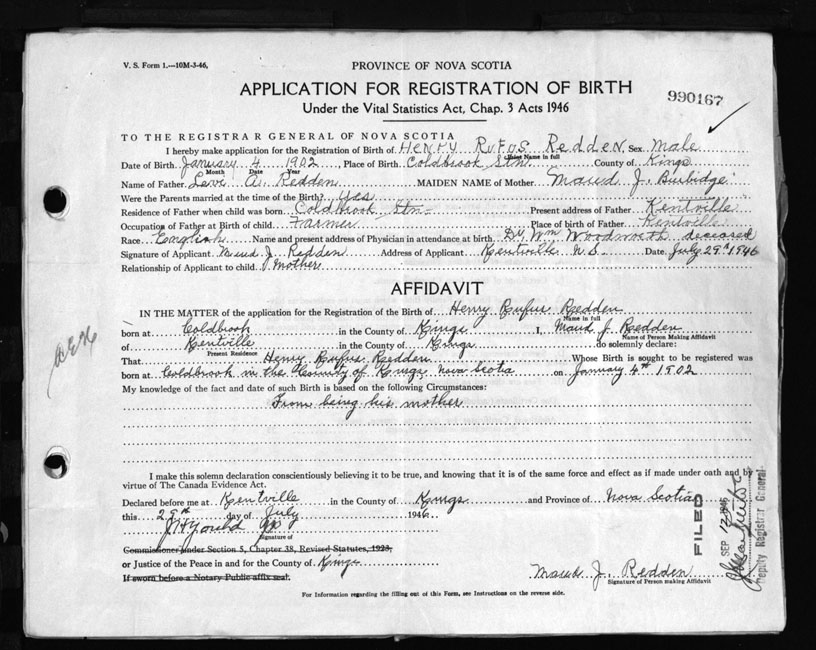 V. S. Form 1.—10M-3-46.
PROVINCE OF NOVA SCOTIA
APPLICATION FOR REGISTRATION OF BIRTH
990167
Under the Vital Statistics Act, Chap. 3 Acts 1946
TO THE REGISTRAR GENERAL OF NOVA SCOTIA
I hereby make application for the Registration of Birth of HENRY RUFUS REDDEN Sex Male
Name in full
Date of Birth January 4 1902 Place of Birth Coldbrook Stn County of Kings
Month Date Year
Name of Father Levi A. Redden MAIDEN NAME of Mother Maud J. Burbidge
Were the Parents married at the time of the Birth? Yes
Residence of Father when child was born Coldbrook Stn Present address of Father Kentville
Occupation of Father at Birth of child Farmer Place of birth of Father Kentville
Race English Name and present address of Physician in attendance at birth Dr Wm Woodworth deceased
Signature of Applicant Maud J. Redden Address of Applicant Kentville N.S. Date July 29th 1946
Relationship of Applicant to child Mother
AFFIDAVIT
IN THE MATTER of the application for the Registration of the Birth of Henry Rufus Redden
Name in full
born at Coldbrook in the County of Kings I, Maud J Redden
Name of Person Making Affidavit
of Kentville in the County of Kings do solemnly declare:
Present Residence
That Henry Rufus Redden Whose Birth is sought to be registered was
born at Coldbrook in the County of Kings Nova Scotia on January 4th 1902
My knowledge of the fact and date of such Birth is based on the following Circumstances:
From being his mother
I make this solemn declaration conscientiously believing it to be true, and knowing that it is of the same force and effect as if made under oath and by
virtue of The Canada Evidence Act.
Declared before me at Kentville in the County of Kings and Province of Nova Scotia
this 29th day of July 1946
Signature of
Commissioner under Section 5, Chapter 38, Revised Statutes, 1923,
or Justice of the Peace in and for the County of Kings
If sworn before a Notary Public affix seal.
Maud J. Redden
Signature of Person making Affidavit
For Information regarding the filling out of this Form, see Instructions on the reverse side.
FILED
SEP 12 1946
Deputy Registrar General